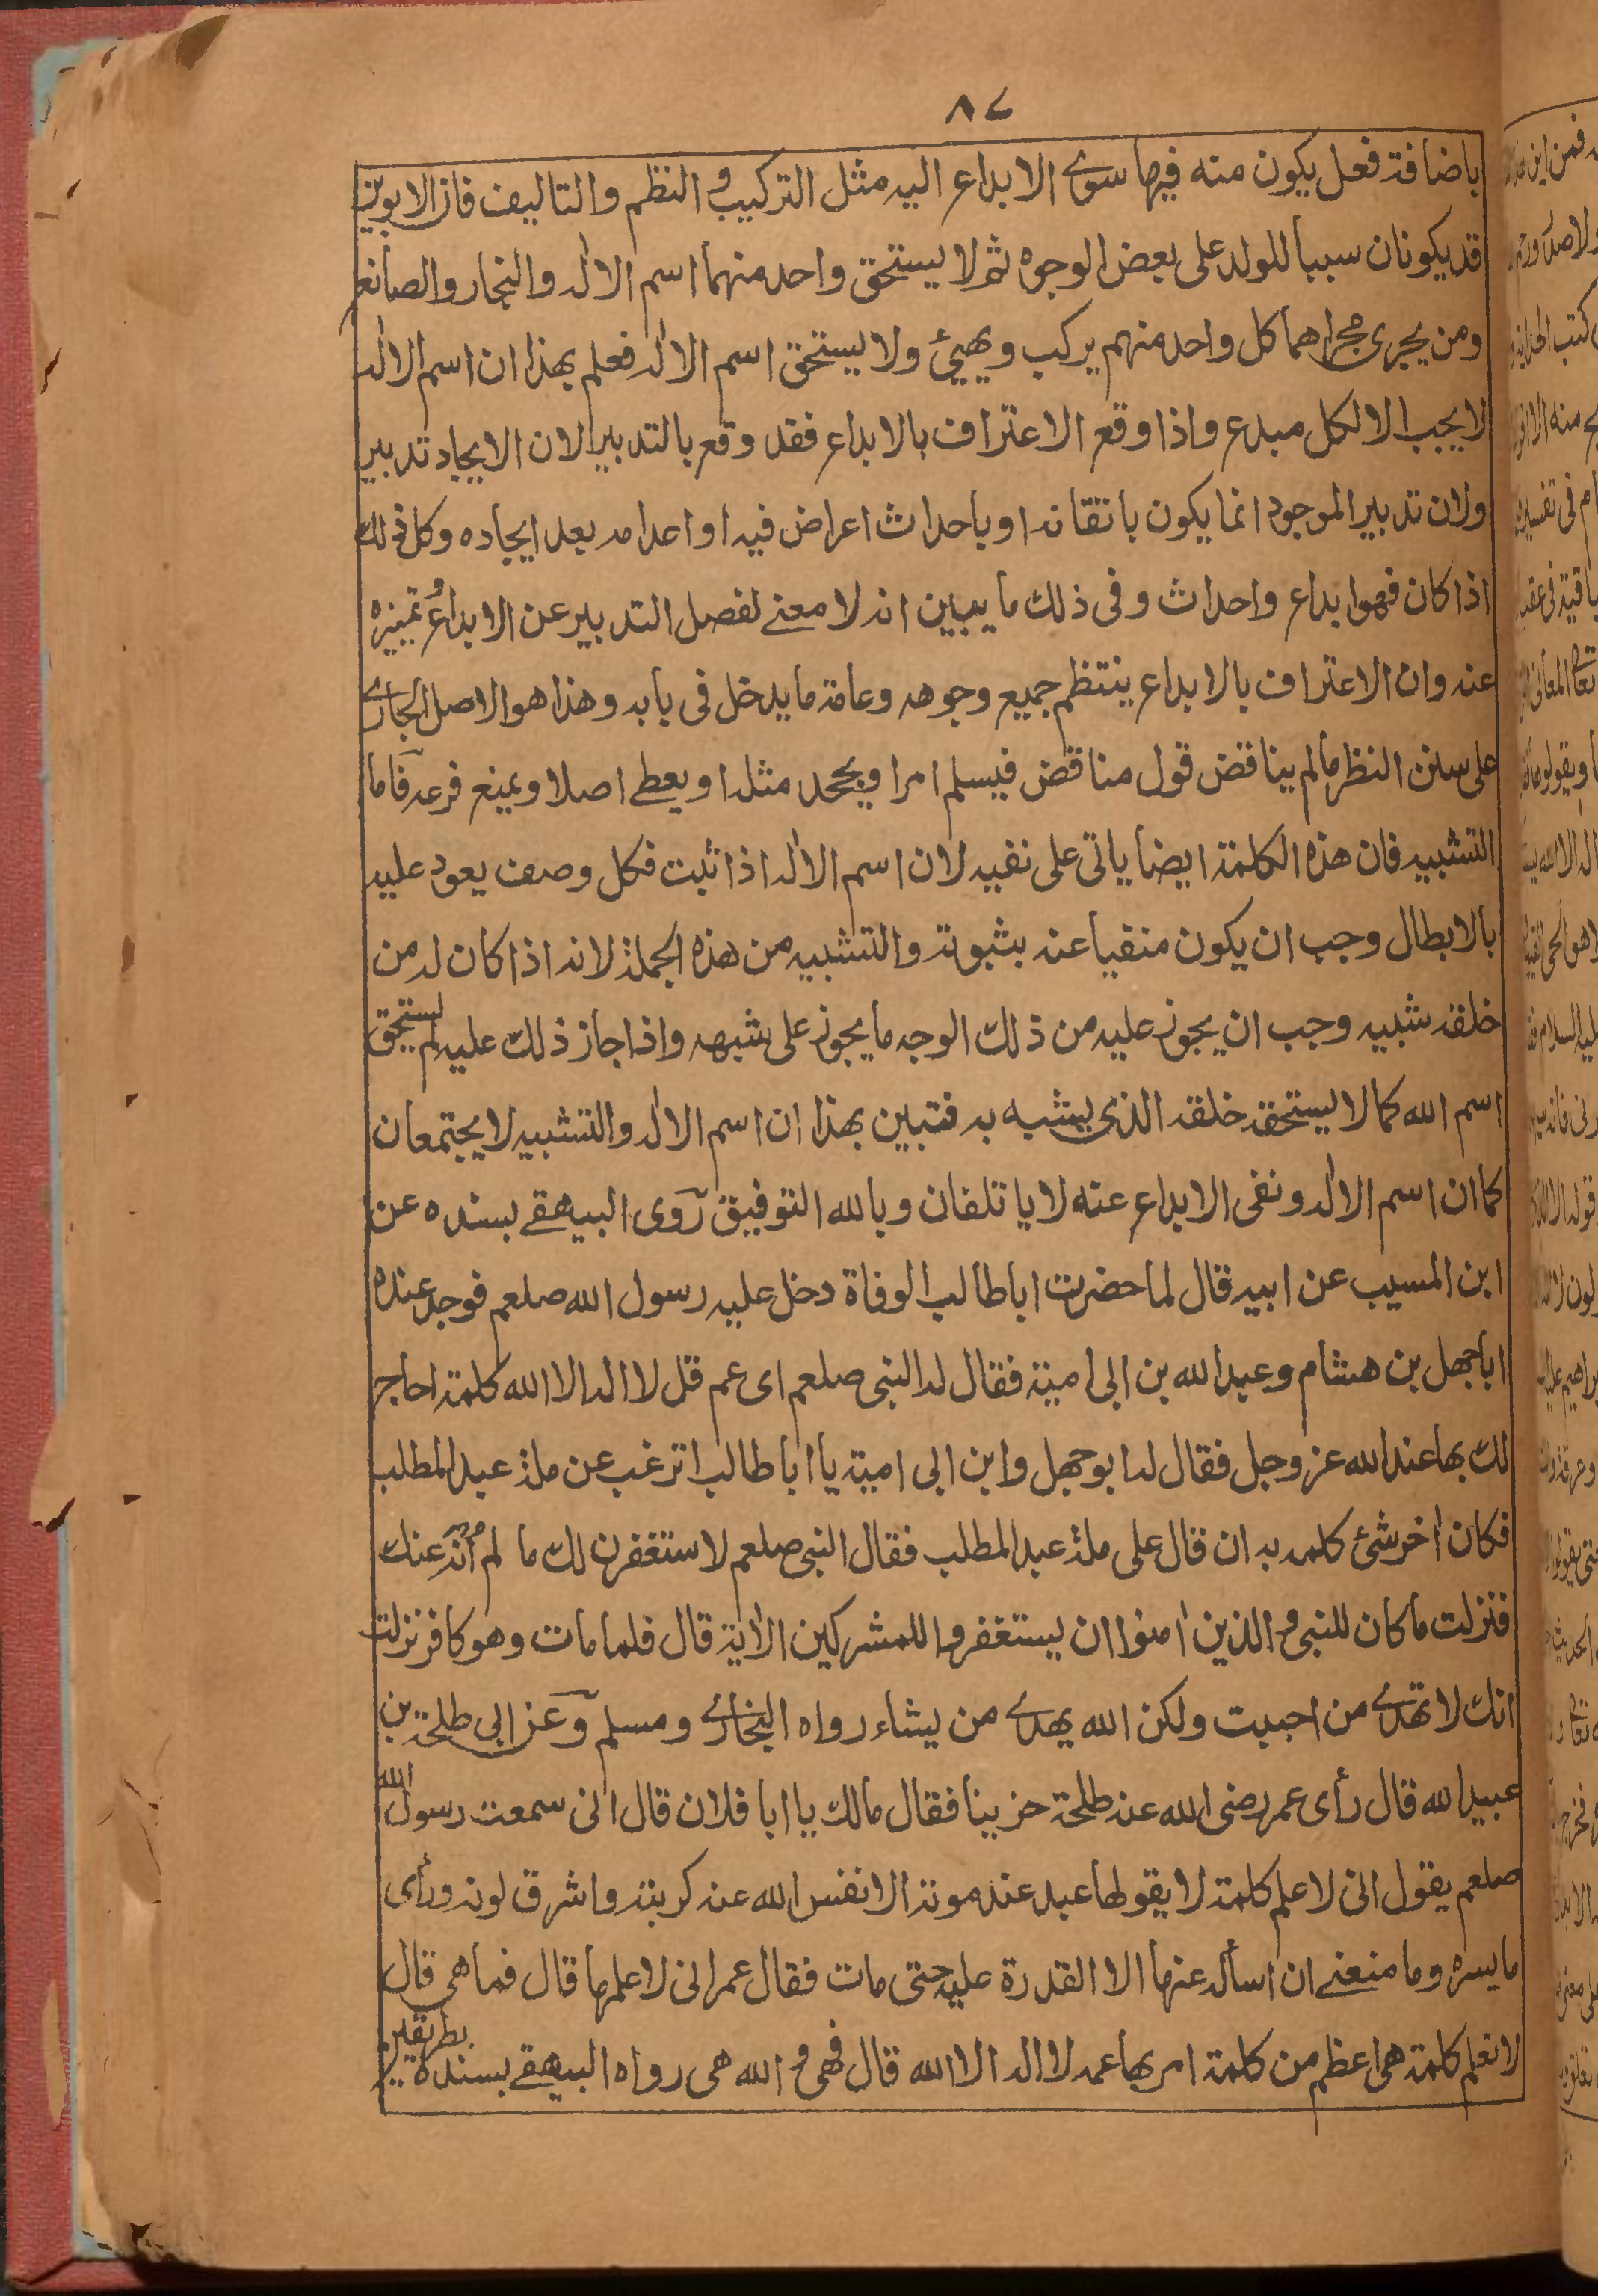 ٨٧
باضافة فعل يكون منه فيها سوى الابداع اليه مثل التركيب و النظم والتاليف فان الابوين
قد يكونان سببا للولد على بعض الوجوه ثم لا يستحق واحد منهما اسم الاله والنجار والصانع
ومن يجرى مجراهما كل واحد منهم يركب ويهيئ ولا يستحق اسم الاله فعلم بهذا ان اسم الاله
لا يجب الا لكل مبدع واذا وقع الاعتراف بالابداع فقد وقع بالتدبير لان الايجاد تدبير
ولان تدبير الموجود انما يكون باتقانه او باحداث اعراض فيه او اعدامه بعد ايجاده وكل ذلك
اذا كان فهو ابداع واحداث وفى ذلك ما يبين انه لا معنے لفصل التدبير عن الابداع و تميزه
عنه وان الاعتراف بالابداع ينتظم جميع وجوهه وعامة ما يدخل فى بابه وهذا هو الاصل الجارے
على سنن النظر ما لم يناقض قول مناقض فيسلم امرا ويجحد مثله او يعطے اصلا ويمنع فرعه فاما
التشبيه فان هذه الكلمة ايضا ياتى على نفيه لان اسم الاله اذا ثبت فكل وصف يعود عليه
بالابطال وجب ان يكون منفيا عنه بثبوته والتشبيه من هذه الجملة لانه اذا كان له من
خلقه شبيه وجب ان يجوز عليه من ذلك الوجه ما يجوز على شبهه واذا جاز ذلك عليه لم يستحق
اسم الله كما لا يستحقه خلقه الذى يشبه به فتبين بهذا ان اسم الاله والتشبيه لا يجتمعان
كما ان اسم الاله ونفى الابداع عنه لا ياتلفان وبالله التوفيق روى البيهقے بسنده عن
ابن المسيب عن ابيه قال لما حضرت ابا طالب الوفاة دخل عليه رسول الله صلعم فوجد عنده
ابا جهل بن هشام وعبد الله بن ابى امية فقال له النبى صلعم اى عم قل لا اله الا الله كلمة احاجر
لك بها عند الله عز وجل فقال له ابو جهل وابن ابى امية يا ابا طالب اترغب عن ملة عبد المطلب
فكان اخر شئ كلمه به ان قال على ملة عبد المطلب فقال النبى صلعم لاستغفرن لك ما لم اُنه عنك
فنزلت ما كان للنبى و الذين اٰمنوا ان يستغفروا للمشركين الاٰية قال فلما مات وهو كافر نزلت
انك لا تهدے من احببت ولكن الله يهدے من يشاء رواه البخارے ومسلم وعن ابى طلحة بن
عبيد الله قال رأى عمر رضى الله عنه طلحة حزينا فقال مالك يا ابا فلان قال انى سمعت رسول الله
صلعم يقول انى لاعلم كلمة لا يقولها عبد عند موته الا نفس الله عنه كربته واشرق لونه ورأى
ما يسره وما منعنے ان اسأله عنها الا القدرة عليه حتى مات فقال عمر انى لاعلمها قال فما هى قال
لا نعلم كلمة هى اعظم من كلمة امر بها عمه لا اله الا الله قال فهى و الله هى رواه البيهقے بسنده بطريقين